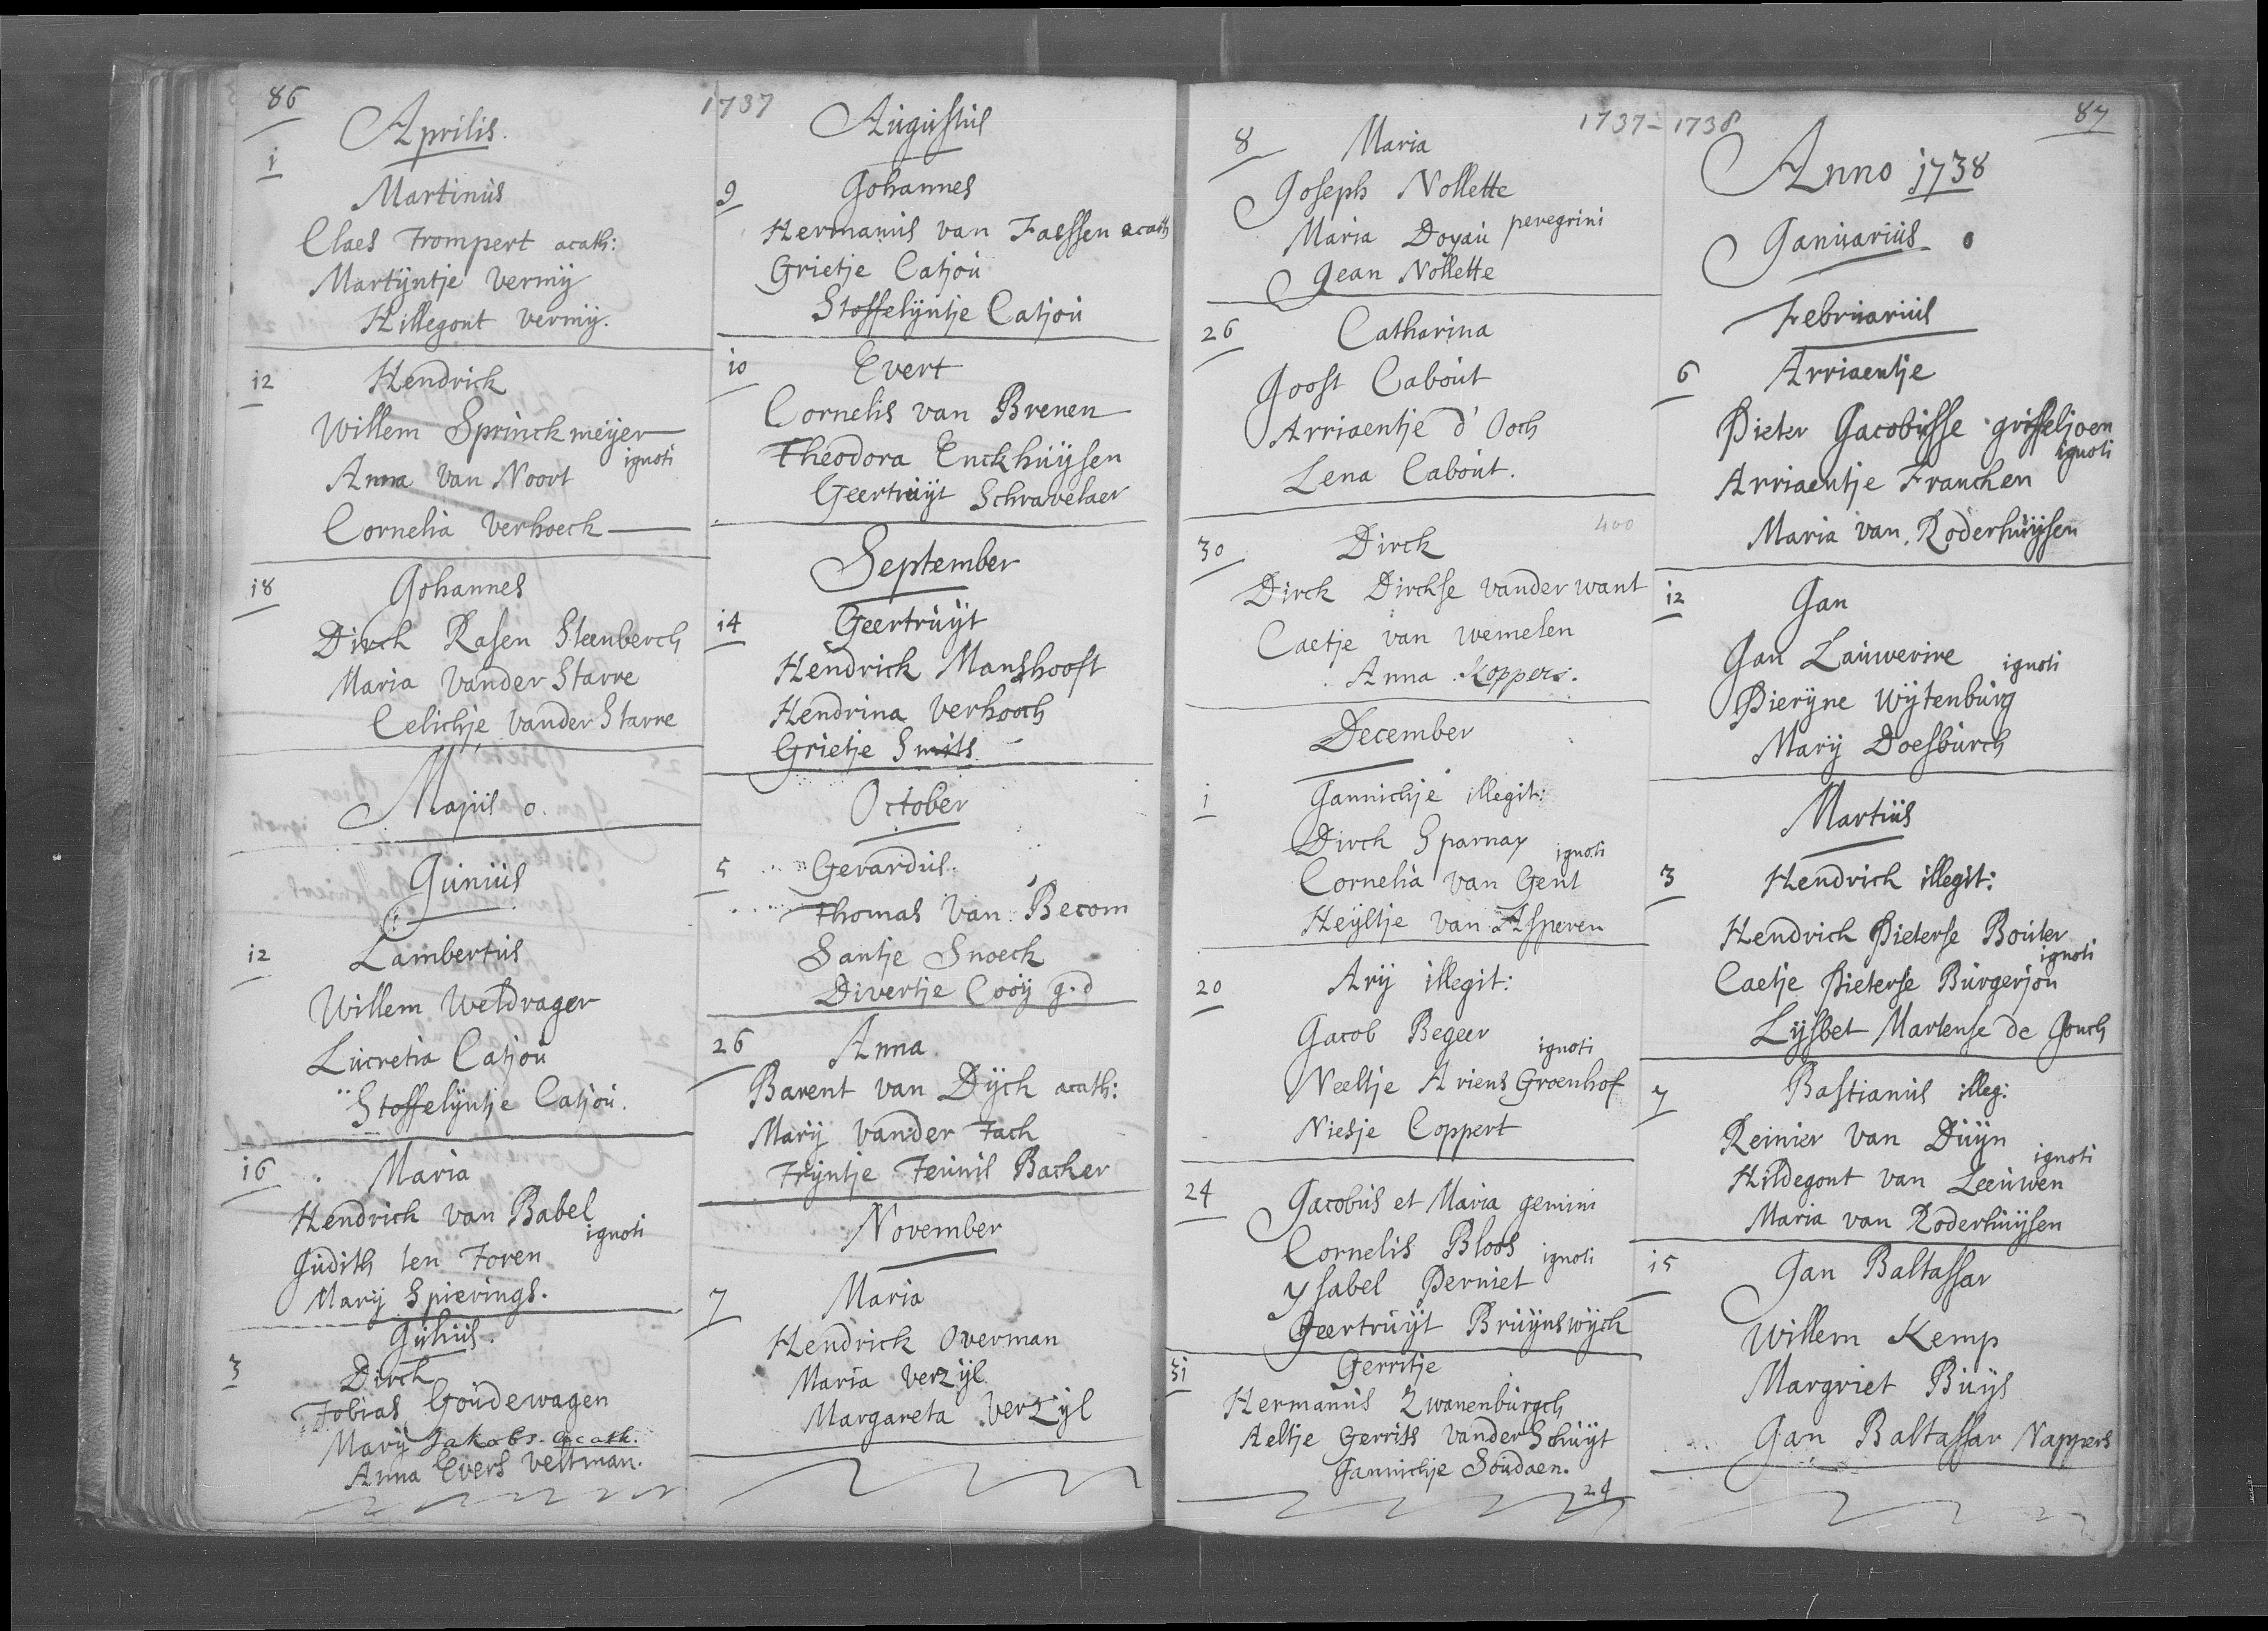 86
1737
Aprilis.
1
Martinus
Claes Trompert acath:
Martijntje Vermij
Hillegont Vermij.
12
Hendrick
Willem Sprinckmeijer
ignoti
Anna van Noort
Cornelia Verhoeck
18
Johannes
Dirck Rasen Steenberch
Maria vander Starre
Celichje vander Starre
Majus 0.
Junius
12
Lambertus
Willem Weldrager
Lucretia Catjou
Stoffelijntje Catjou.
16
Maria
Hendrick van Babel
ignoti
Judith ten Toren
Marij Spierings.
Julius.
3
Dirck
Tobias Goudewagen
Marij Jakobs. acath.
Anna Evers Veltman.
Augustus
9
Johannes
Hermanus van Faessen acath
Grietje Catjou
Stoffelijntje Catjou
10
Evert
Cornelis van Brenen
Theodora Enckhuijsen
Geertruijt Schravelaer
September
14
Geertruijt
Hendrick Manshooft
Hendrina Verhoech
Grietje Smits
October
5
Gerardus.
Thomas van Becom
Santje Snoeck
Divertje Cooij g.d
26
Anna
Barent van Dijck acath:
Marij vander Tach
Trijntje Teunis Backer
November
7
Maria
Hendrick Overman
Maria Verzijl
Margareta Verzijl
1737-1738
87
8
Maria
Joseph Nollette
peregrini
Maria Doyau
Jean Nollette
26
Catharina
Joost Cabout
Arriaentje d'Ooch
Lena Cabout.
400
30
Dirck
Dirck Dirckse vander want
Caetje van wemelen
Anna Koppers.
December
1
Jannichje illegit:
Dirck Sparnay
ignoti
Cornelia van Gent
Heijltje van Asperen
20
Arij illegit:
Jacob Begeer
ignoti
Neeltje Ariens Groenhof
Niesje Coppert
24
Jacobus et Maria gemini
Cornelis Bloos
ignoti
Ysabel Perniet
Geertruijt Bruijnswijck
31
Gerritje
Hermanus Zwanenburgch
Aeltje Gerrits vander Schuijt
Jannichje Soudaen.
24
Anno 1738
Januarius 0
Februarius
6
Arriaentje
Pieter Jacobusse grisseljoen
ignoti
Arriaentje Francken
Maria van Roderhuijsen
12
Jan
Jan Lauwerire
ignoti
Pierijne Wijtenburg
Marij Doesburch
Martius
3
Hendrick illegit:
Hendrick Pieterse Bouter
ignoti
Caetje Pieterse Burgerjou
Lijsbet Martense de Jonch
7
Bastianus illeg:
Reinier van Duijn
ignoti
Hildegont van Leeuwen
Maria van Roderhuijsen
15
Jan Baltassar
Willem Kemp
Margriet Buijs
Jan Baltassar Nappers